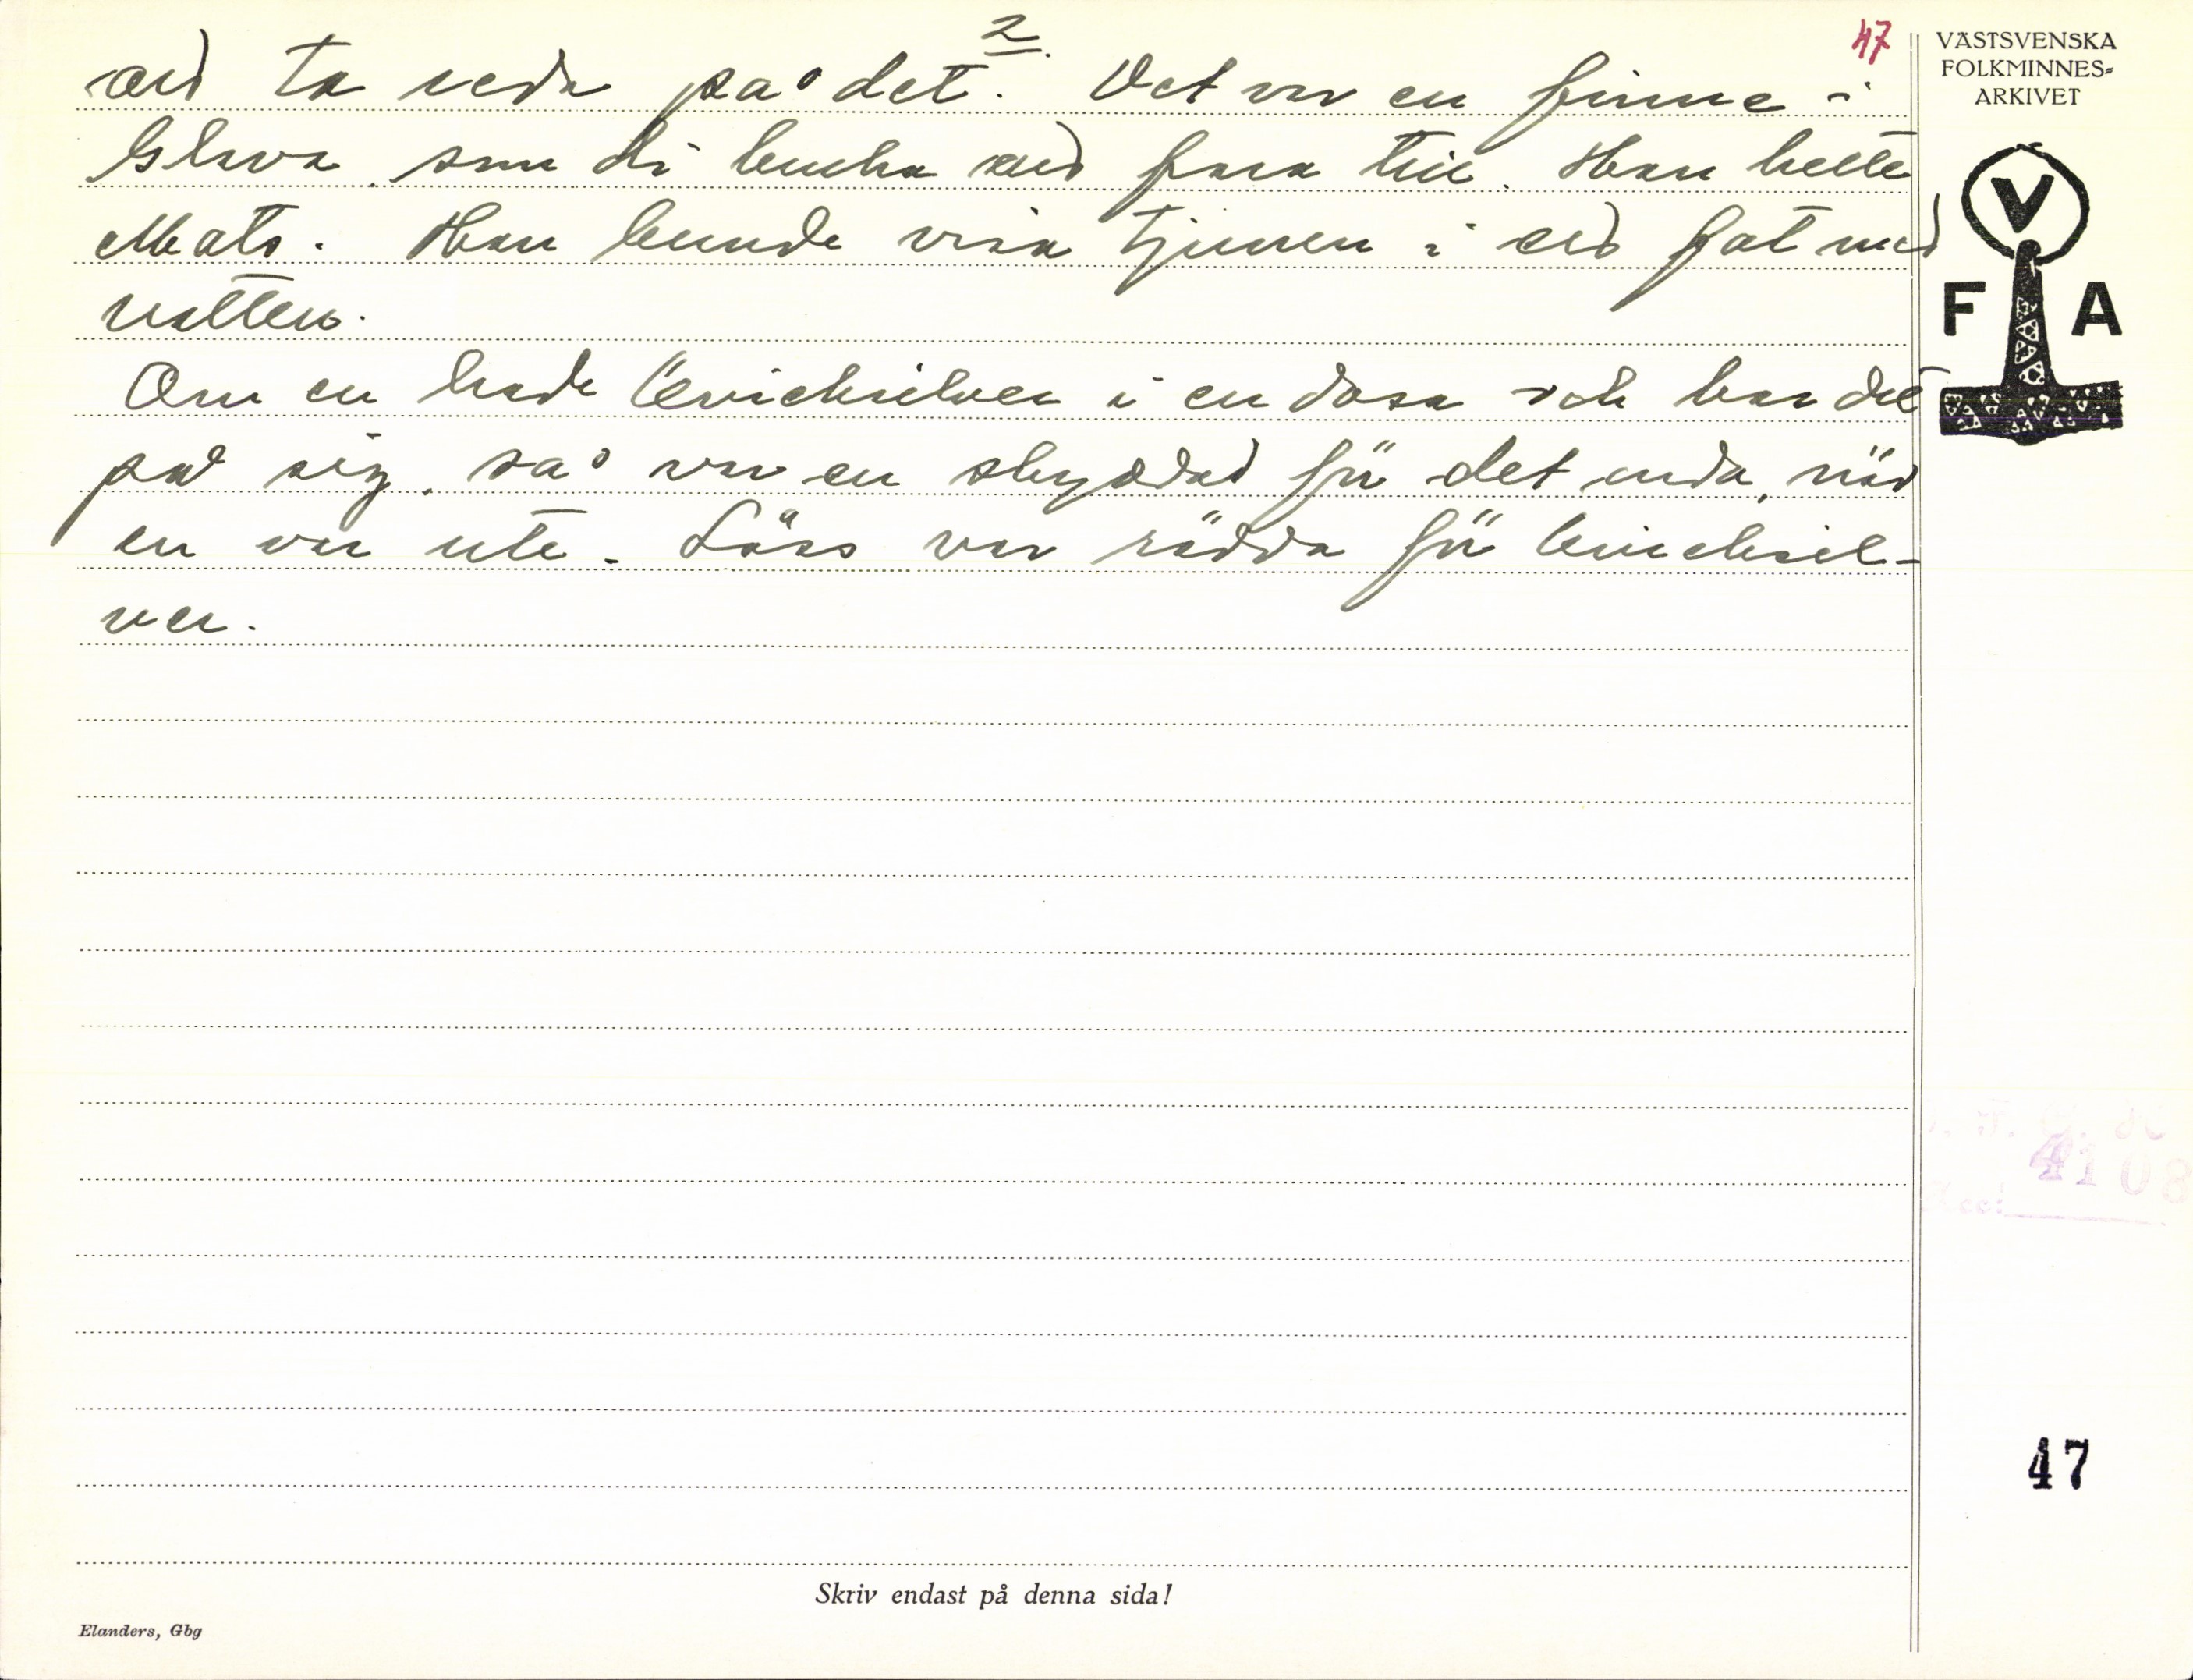 2.
47
VÄSTSVENSKA
FOLKMINNES=
ARKIVET
ta reda på det. Det var en finne i
Glava som di bruka fara till. Han hette
Mats. Han kunde visa tjuven i fat med
vatten.
V
F A
Om en hade kvicksilver i en dosa och bar det
på sig, så var en skyddad för det onda, när
en var ute. Låss var rädda för kvicksil-
ver.
4108
47
Skriv endast på denna sida!
Elanders, Gbg